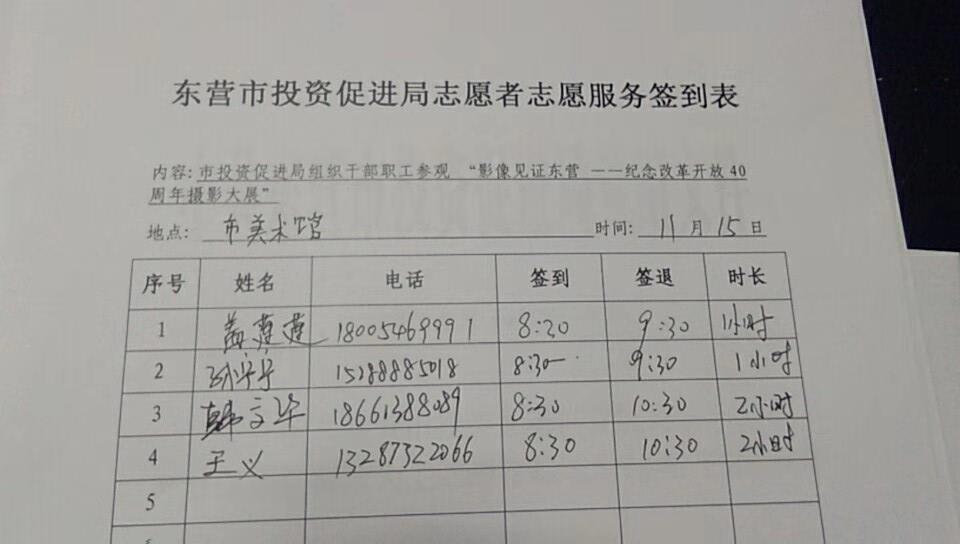 东营市投资促进局志愿者志愿服务签到表
内容: 市投资促进局组织干部职工参观 “影像见证东营 ——纪念改革开放 40
周年摄影大展”
地点: 市美术馆 时间: 11 月 15 日
序号 姓名 电话 签到 签退 时长
1 18005469991 8:30 9:30 1小时
2 15288885018 8:30 9:30 1小时
3 韩文华 18661388089 8:30 10:30 2小时
4 王义 13287322066 8:30 10:30 2小时
5